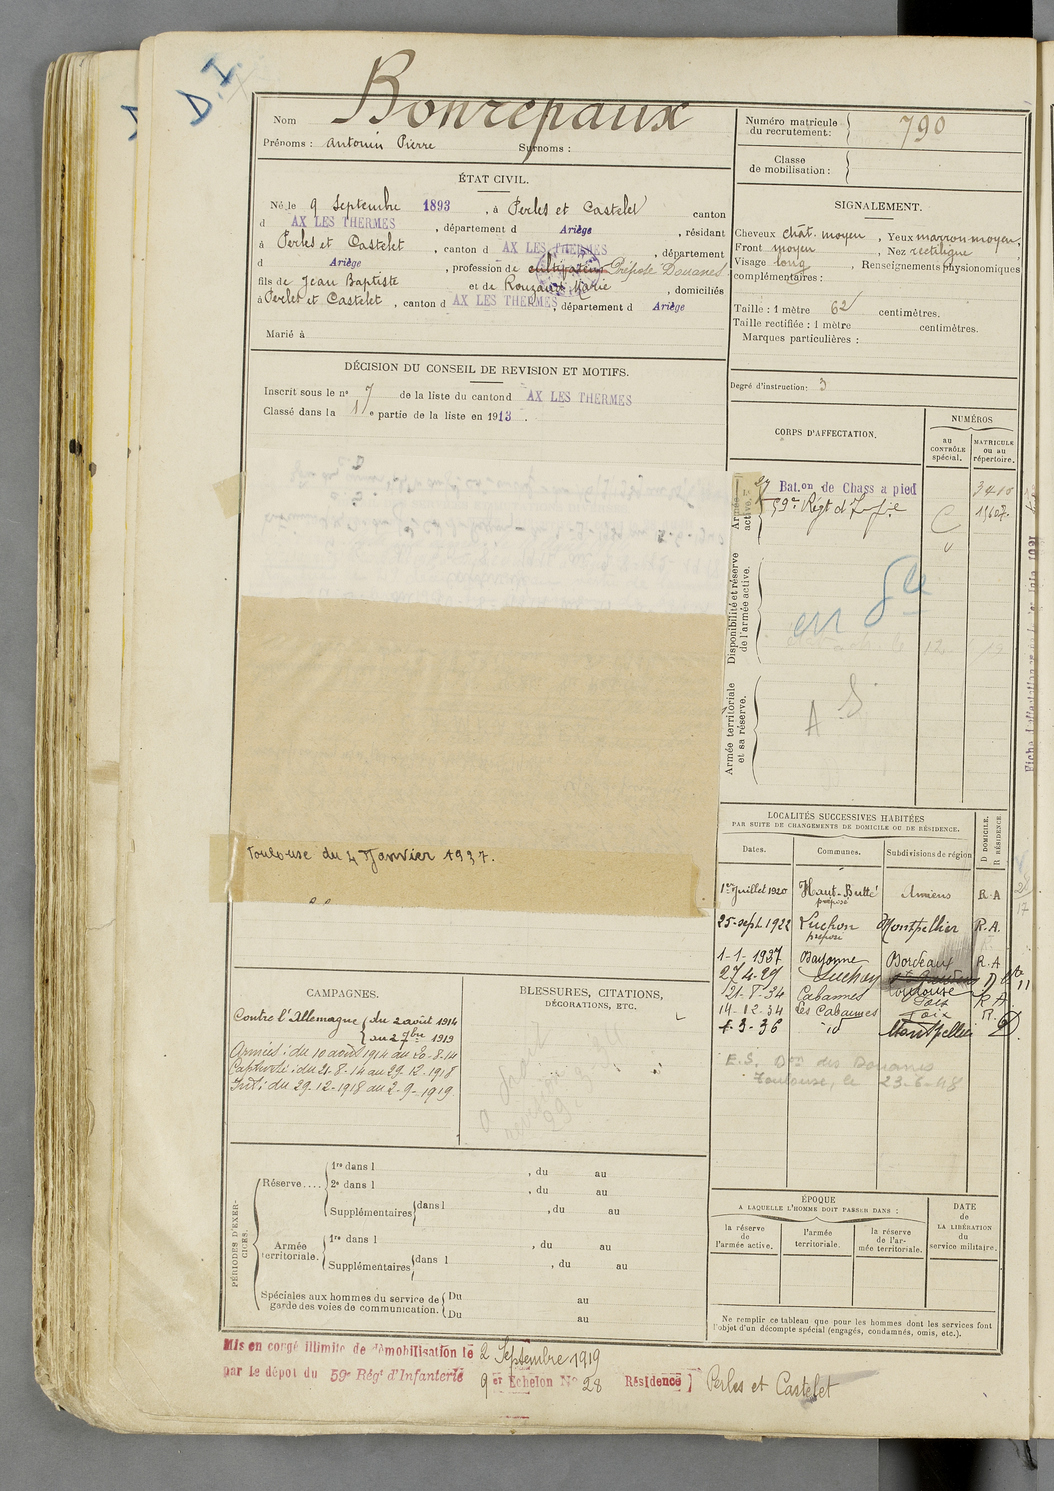 D.I
Bonrepaux
Nom
Prénoms : Antonin Pierre Surnoms :
Numéro matricule
du recrutement : 790
Classe
de mobilisation :
ÉTAT CIVIL.
Né le 9 Septembre 1893, à Perles et Castelet canton
d AX LES THERMES, département d Ariège, résidant
à Perles et Castelet, canton d AX LES THERMES, département
d Ariège, profession de cultivateur Préposé Douanes
fils de Jean Baptiste et de Rouzaud Marie, domiciliés
à Perles et Castelet, canton d AX LES THERMES, département d Ariège
Marié à
SIGNALEMENT.
Cheveux chât. moyen, Yeux marron moyen,
Front moyen, Nez rectiligne
Visage long, Renseignements physionomiques
complémentaires :
Taille : 1 mètre 62 centimètres.
Taille rectifiée : 1 mètre centimètres.
Marques particulières :
Degré d'instruction : 3
DÉCISION DU CONSEIL DE REVISION ET MOTIFS.
Inscrit sous le nº 7 de la liste du canton d AX LES THERMES
Classé dans la 1re partie de la liste en 1913.
Toulouse du 4 Janvier 1937.
CORPS D'AFFECTATION.
NUMÉROS
au
CONTRÔLE
spécial.
MATRICULE
ou au
répertoire.
Armée
active.
Bat.on de Chass a pied 3410
59e Régt d'Infie 15607
Disponibilité et réserve
de l'armée active.
en
Armée territoriale
et sa réserve.
A S
LOCALITÉS SUCCESSIVES HABITÉES
PAR SUITE DE CHANGEMENTS DE DOMICILE OU DE RÉSIDENCE.
Dates. Communes. Subdivisions de région
D DOMICILE.
R RÉSIDENCE.
1er Juillet 1920 Haut-Butté Amiens R.A
préposé
25-sept. 1922 Luchon Montpellier R.A.
préposé
1-1-1937 Bayonne Bordeaux R.A
27-4-29 Luchon
21-8-34 Cabannes Toulouse
Foix R A
14-12-34 Les Cabannes Foix R.
1-3-36 id Montpellier D
E.S. Don des Douanes
Toulouse, le 23-6-48
CAMPAGNES.
Contre l'Allemagne du 2 août 1914
au 2 7bre 1919
Armées : du 10 août 1914 au 20-8-14
Captivité : du 21-8-14 au 29-12-1918
Intr : du 29-12-1918 au 2-9-1919.
BLESSURES, CITATIONS,
DÉCORATIONS, ETC.
PÉRIODES D'EXER-
CICES.
Réserve....
1re dans l , du au
2e dans l , du au
Supplémentaires dans l , du au
Armée
territoriale.
1re dans l , du au
Supplémentaires dans l , du au
Spéciales aux hommes du service de
garde des voies de communication.
Du au
Du au
ÉPOQUE
A LAQUELLE L'HOMME DOIT PASSER DANS :
la réserve
de
l'armée active.
l'armée
territoriale.
la réserve
de l'ar-
mée territoriale.
DATE
de
LA LIBÉRATION
du
service militaire.
Ne remplir ce tableau que pour les hommes dont les services font
l'objet d'un décompte spécial (engagés, condamnés, omis, etc.).
Mis en congé illimité de démobilisation le 2 Septembre 1919
par le dépot du 59e Régt d'Infanterie 9er Echelon No 28 Résidence Perles et Castelet